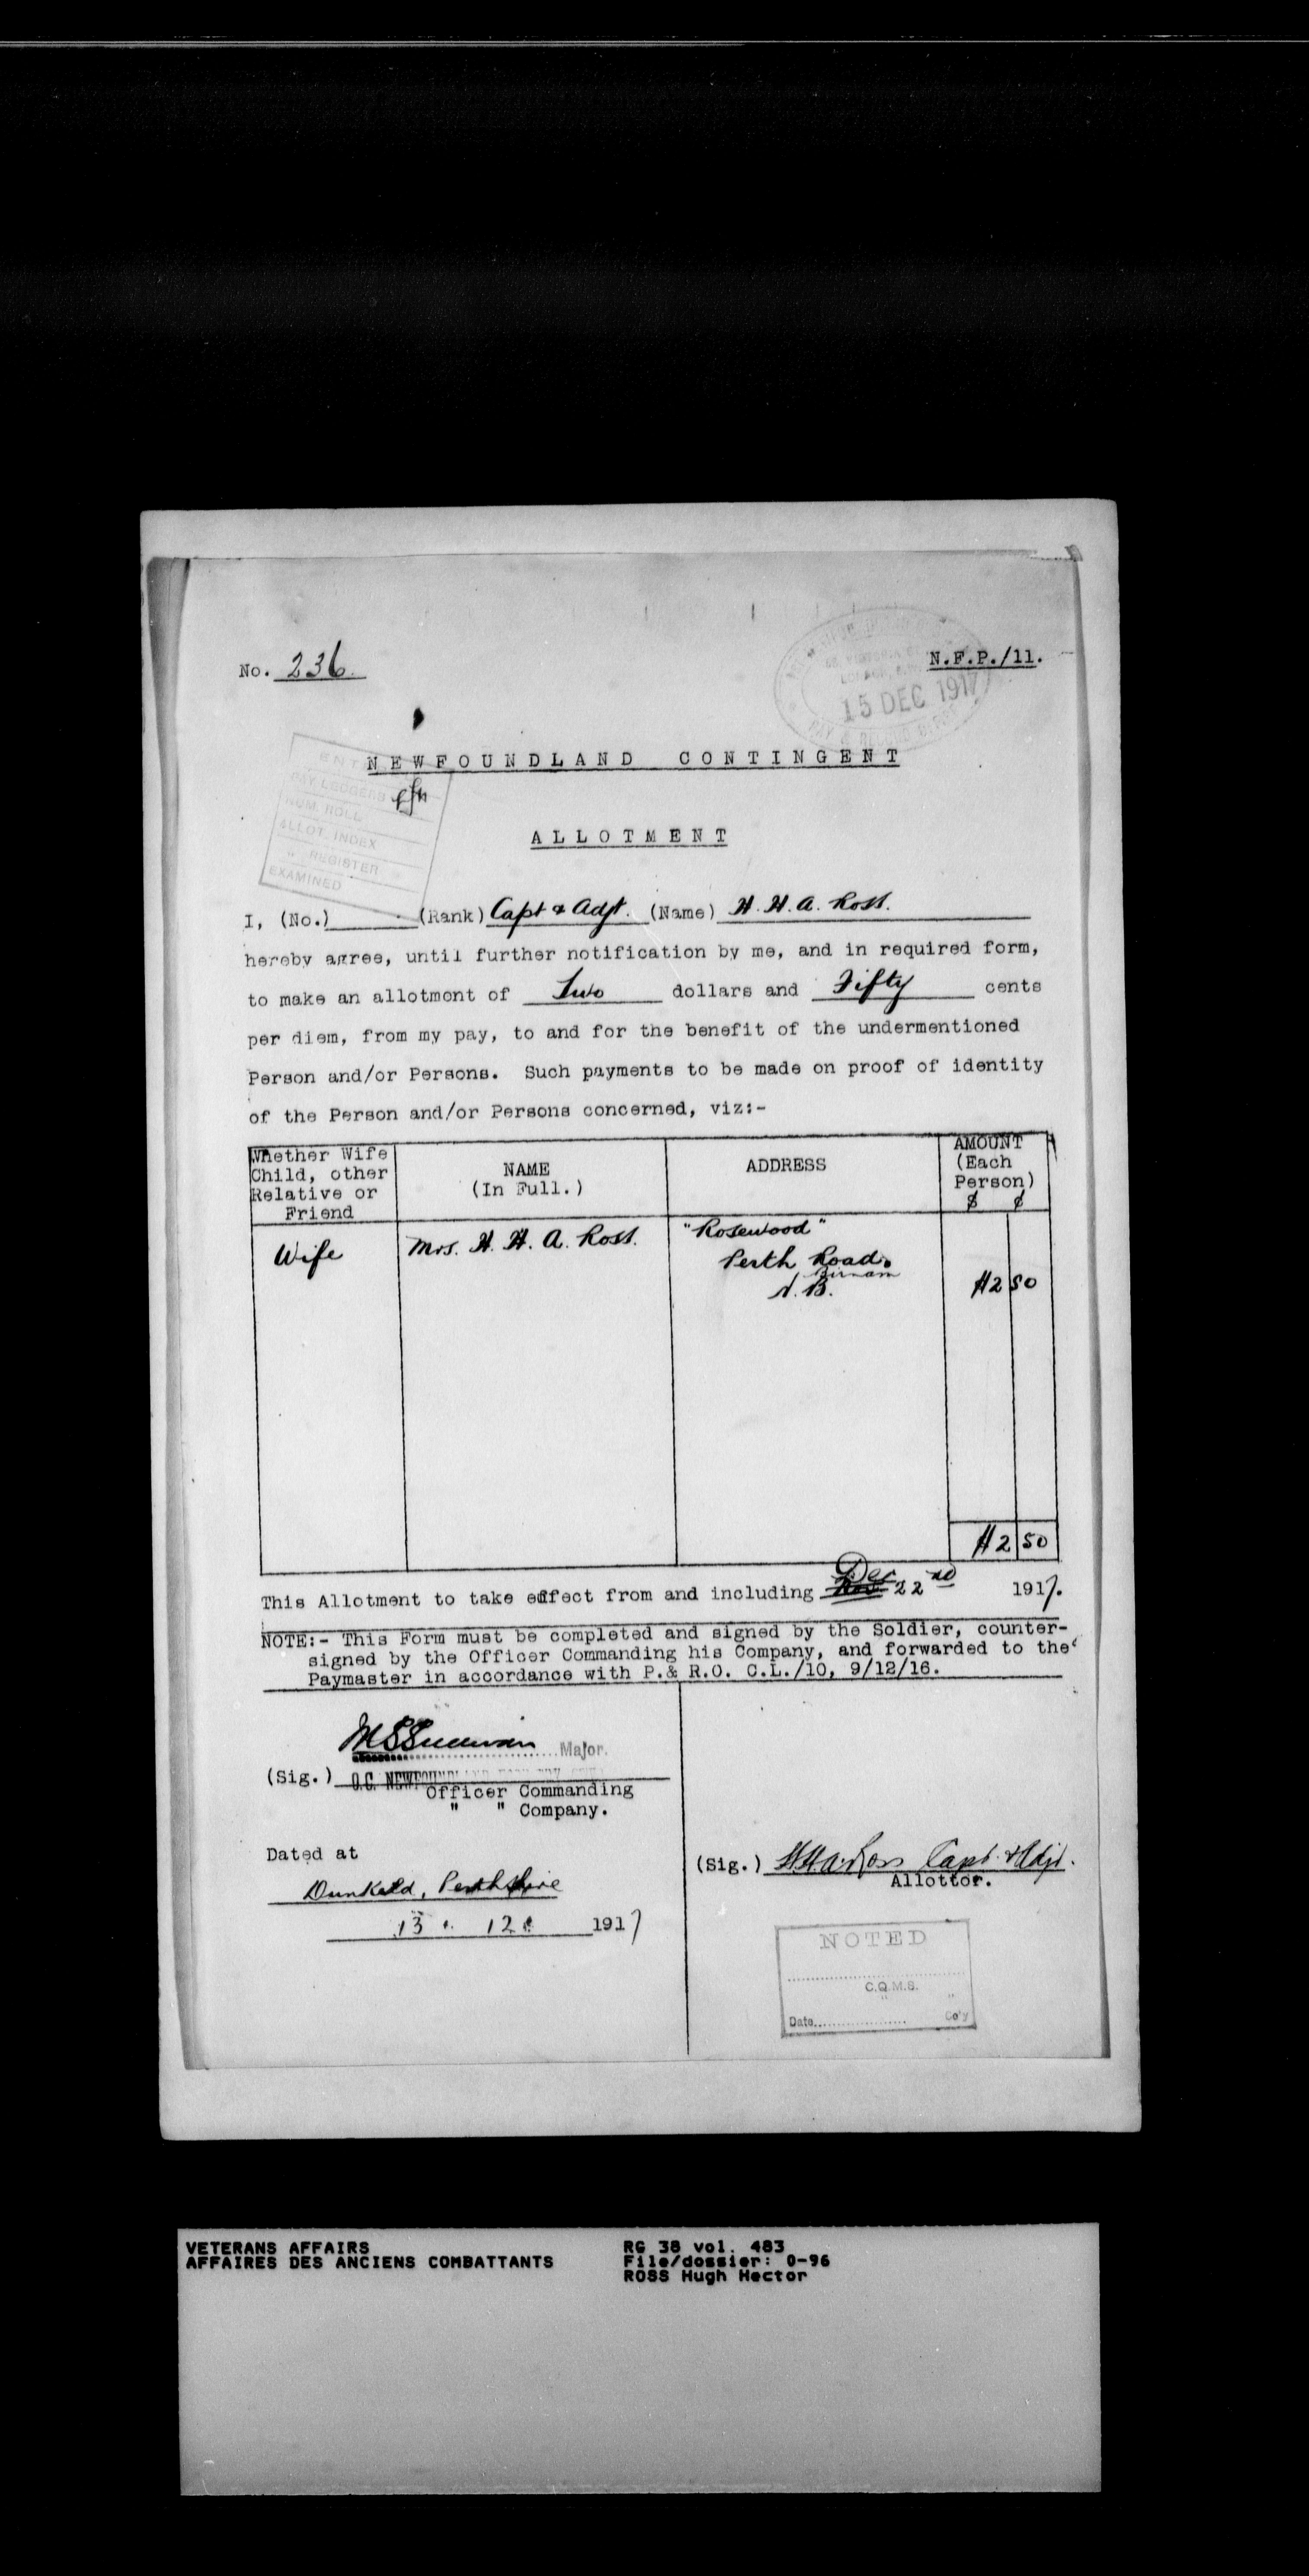 No. 236.
N.F.P./11.
15 DEC 1917
NEWFOUNDLAND CONTINGENT
PAY LEDGERS
NOM. ROLL
ALLOT. INDEX
" REGISTER
EXAMINED
ALLOTMENT
I, (No.) (Rank) Capt & Adjt. (Name) H. H. A. Ross.
hereby agree, until further notification by me, and in required form,
to make an allotment of Two dollars and Fifty cents
per diem, from my pay, to and for the benefit of the undermentioned
Person and/or Persons. Such payments to be made on proof of identity
of the Person and/or Persons concerned, viz:-
Whether Wife
Child, other
Relative or
Friend
NAME
(In Full.)
ADDRESS
AMOUNT
(Each
Person)
$ ¢
Wife Mrs. H. H. A. Ross. "Rosewood"
Perth Road.
Birnam
N.B.
$2 50
$2 50
This Allotment to take effect from and including Nov. Dec 22nd 1917.
NOTE:- This Form must be completed and signed by the Soldier, counter-
signed by the Officer Commanding his Company, and forwarded to the
Paymaster in accordance with P.& R.O. C.L./10, 9/12/16.
Major.
(Sig.) O.C. NEWFOUNDLAND
Officer Commanding
" " Company.
Dated at
Dunkeld, Perthshire
13. 12. 1917
(Sig.) H.H.A. Ross Capt. & Adjt.
Allottor.
NOTED
C.Q.M.S.
Date.................... Co'y
VETERANS AFFAIRS
AFFAIRES DES ANCIENS COMBATTANTS
RG 38 vol. 483
File/dossier: 0-96
ROSS Hugh Hector